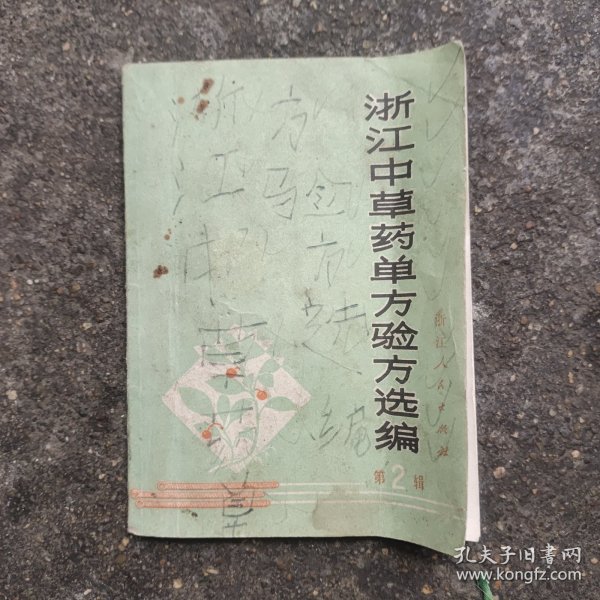 浙江中草药单方验方选编
第2辑
浙江人民出版社
浙江中草药单
方验方选编
孔夫子旧书网
www.kongfz.com